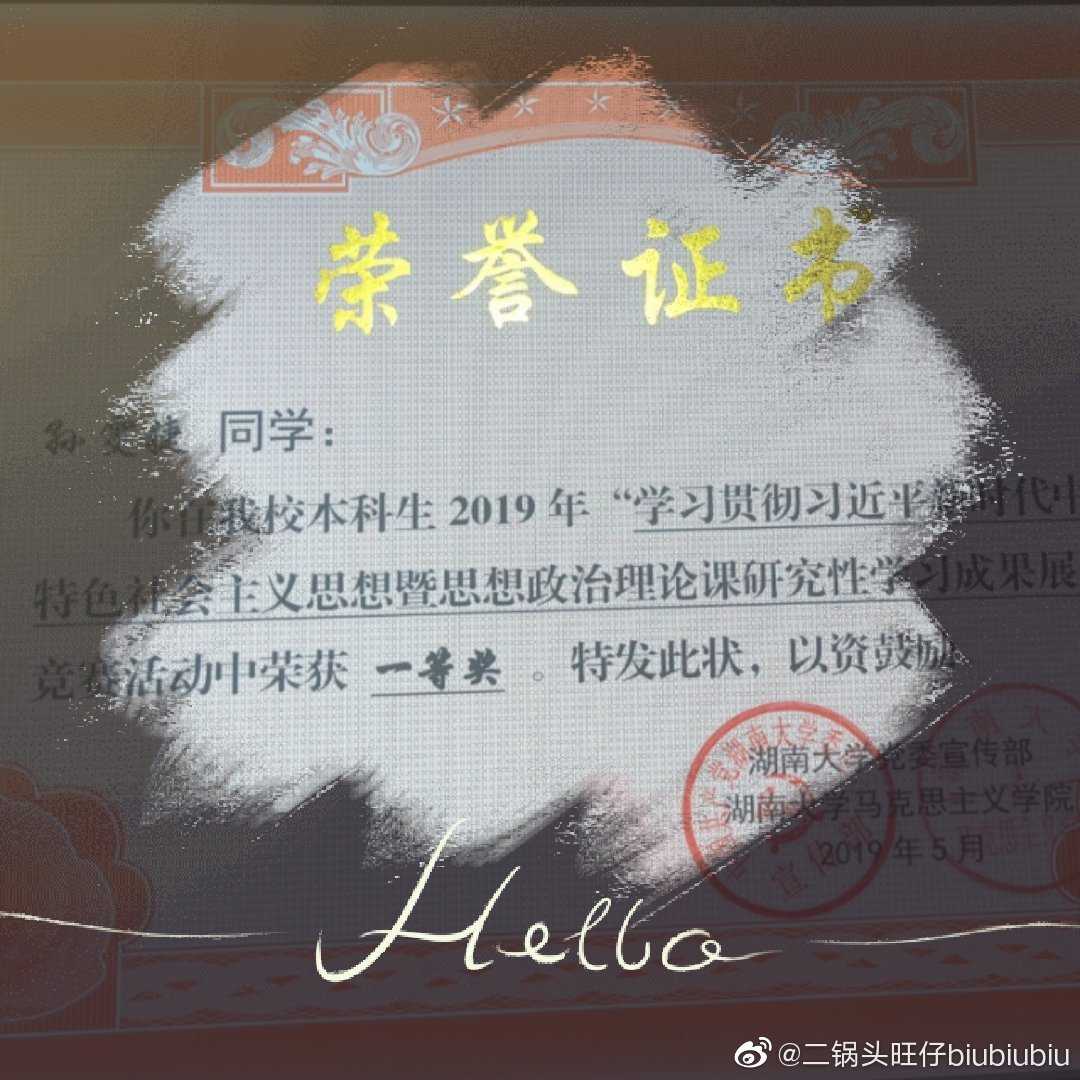 荣誉证书
孙雯婕 同学：
你在我校本科生 2019 年 “学习贯彻习近平新时代中
特色社会主义思想暨思想政治理论课研究性学习成果展
竞赛活动中荣获 一等奖 。特发此状，以资鼓励
湖南大学党委宣传部
湖南大学马克思主义学院
2019 年 5 月
Hello
@二锅头旺仔biubiubiu